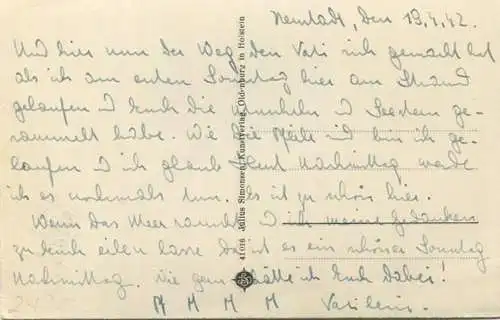 Neustadt, den 19.4.42
Und hier nun der Weg, den Vati sich gemacht hat
als ich am ersten Sonntag hier am Strand
gelaufen u Euch die Muscheln u Seestern ge-
sammelt habe. Wie die Pfeile sind bin ich ge-
laufen u ich glaub heut Nachmittag werde
ich es nochmals tun. Es ist zu schön hier.
Wenn das Meer rauscht u ich meine Gedanken
zu Euch eilen lasse da ist es ein schöner Sonntag
Nachmittag. Wie gern hätte ich Euch dabei!
Vatilein.
41016 Julius Simonsen, Kunstverlag, Oldenburg in Holstein